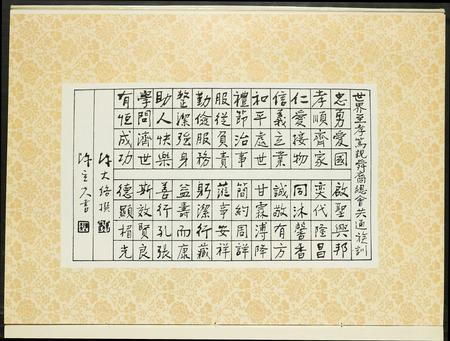 世界至孝篤親舜裔總會共通族訓
忠勇愛國 啟聖興邦
孝順齊家 奕代隆昌
仁愛接物 同沐馨香
信義立業 誠敬有方
和平處世 甘霖溥降
禮節治事 簡約周詳
服從負責 蒞事安祥
勤儉服務 躬潔行藏
整潔強身 益壽而康
助人快樂 善行孔張
學問濟世 斯效賢良
有恆成功 德顯楣光
陳大絡撰
陳立夫書